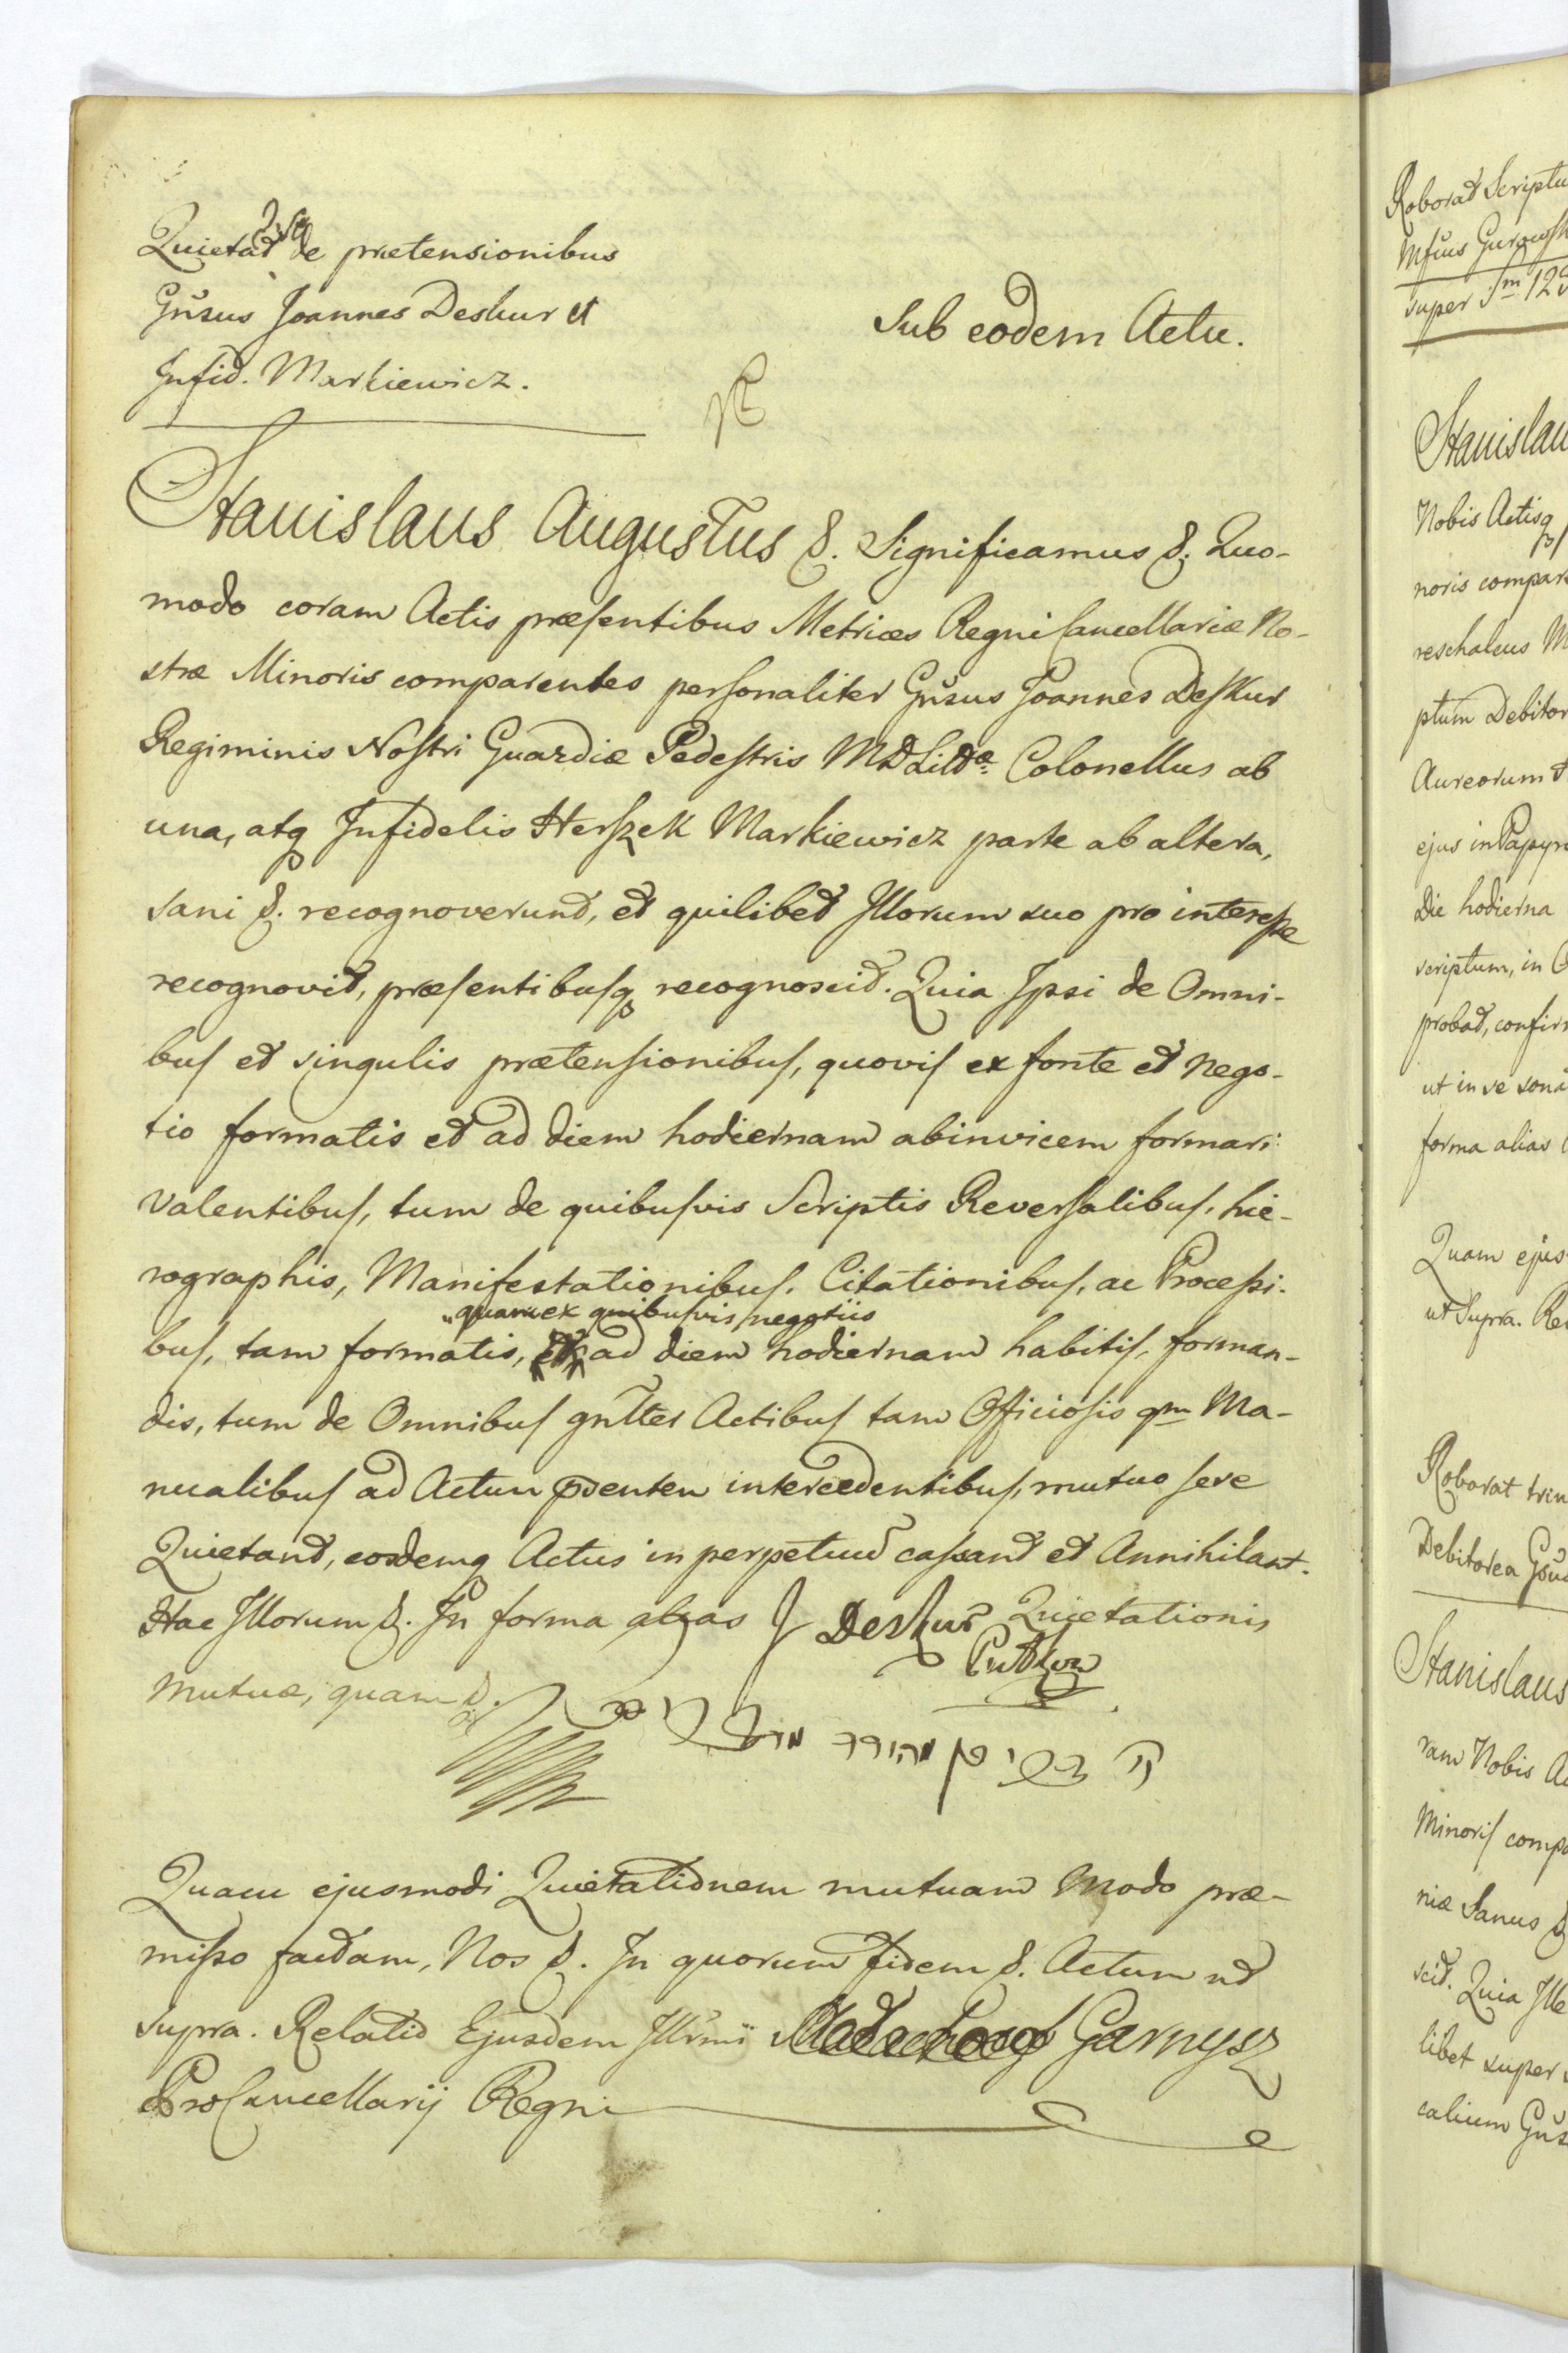 Quietat se de prætensionibus
Gnsus Joannes Deskur et
Infid. Markiewicz.
Sub eodem Actu.
Stanislaus Augustus &. Significamus &. Quo-
modo coram Actis præsentibus Metrices Regni Cancellariæ No-
stræ Minoris comparentes personaliter Gnsus Joannes Deskur
Regiminis Nostri Guardiæ Pedestris MDLitdæ Colonellus ab
una, atq Infidelis Herszek Markiewicz parte ab altera,
sani &. recognoverunt, et quilibet Illorum suo pro interesse
recognovit, præsentibusq recognoscit. Quia Ipsi de Omni-
bus et singulis prætensionibus, quovis ex fonte et nego-
tio formatis et ad diem hodiernam abinvicem formari
valentibus, tum de quibusvis Scriptis Reversalibus, hie-
rographis, Manifestationibus, Citationibus, ac Processi-
quam ex quibusvis negotiis
bus, tam formatis, ad diem hodiernam habitis, forman-
dis, tum de Omnibus gnlter Actibus tam Officiosis qm Ma-
nualibus ad Actum psentem intercedentibus, mutuo sese
Quietant, eosdemq Actus in perpetuum cassant et Annihilant.
Hac Illorum &. In forma alias J Deskur Quietationis
Mutuæ, quam &.
Quam ejusmodi Quietationem mutuam Modo præ-
misso factam, Nos &. In quorum fidem &. Actum ut
supra. Relatio Ejusdem Illrmi Garnysz
ProCancellarij Regni
Roborat Scriptu
super Sm 128
Stanislau
Nobis Actisq
noris compare
reschalcus M
ptum Debitor
Aureorum
ejus in Papyro
Die hodierna
scriptum, in
probat, confir
ut in se sona
forma alias
Quam ejus
ut Supra. Re
Roborat trin
Stanislaus
ram Nobis A
Minoris compa
niæ Sanus &
scit. Quia Ille
libet super